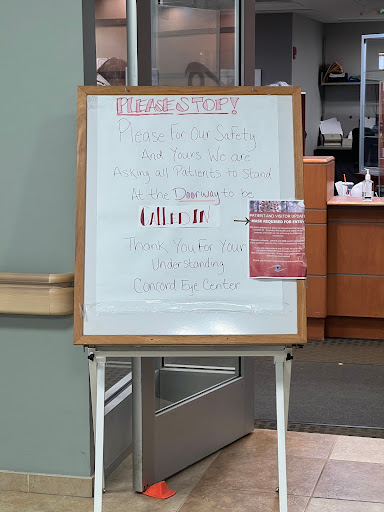 PLEASE STOP!
Please For Our Safety
And Yours We are
Asking all Patients to Stand
At the Doorway to be
Called IN
Thank You For Your
Understanding
Concord Eye Center
PATIENT AND VISITOR UPDATE
MASK REQUIRED FOR ENTRY